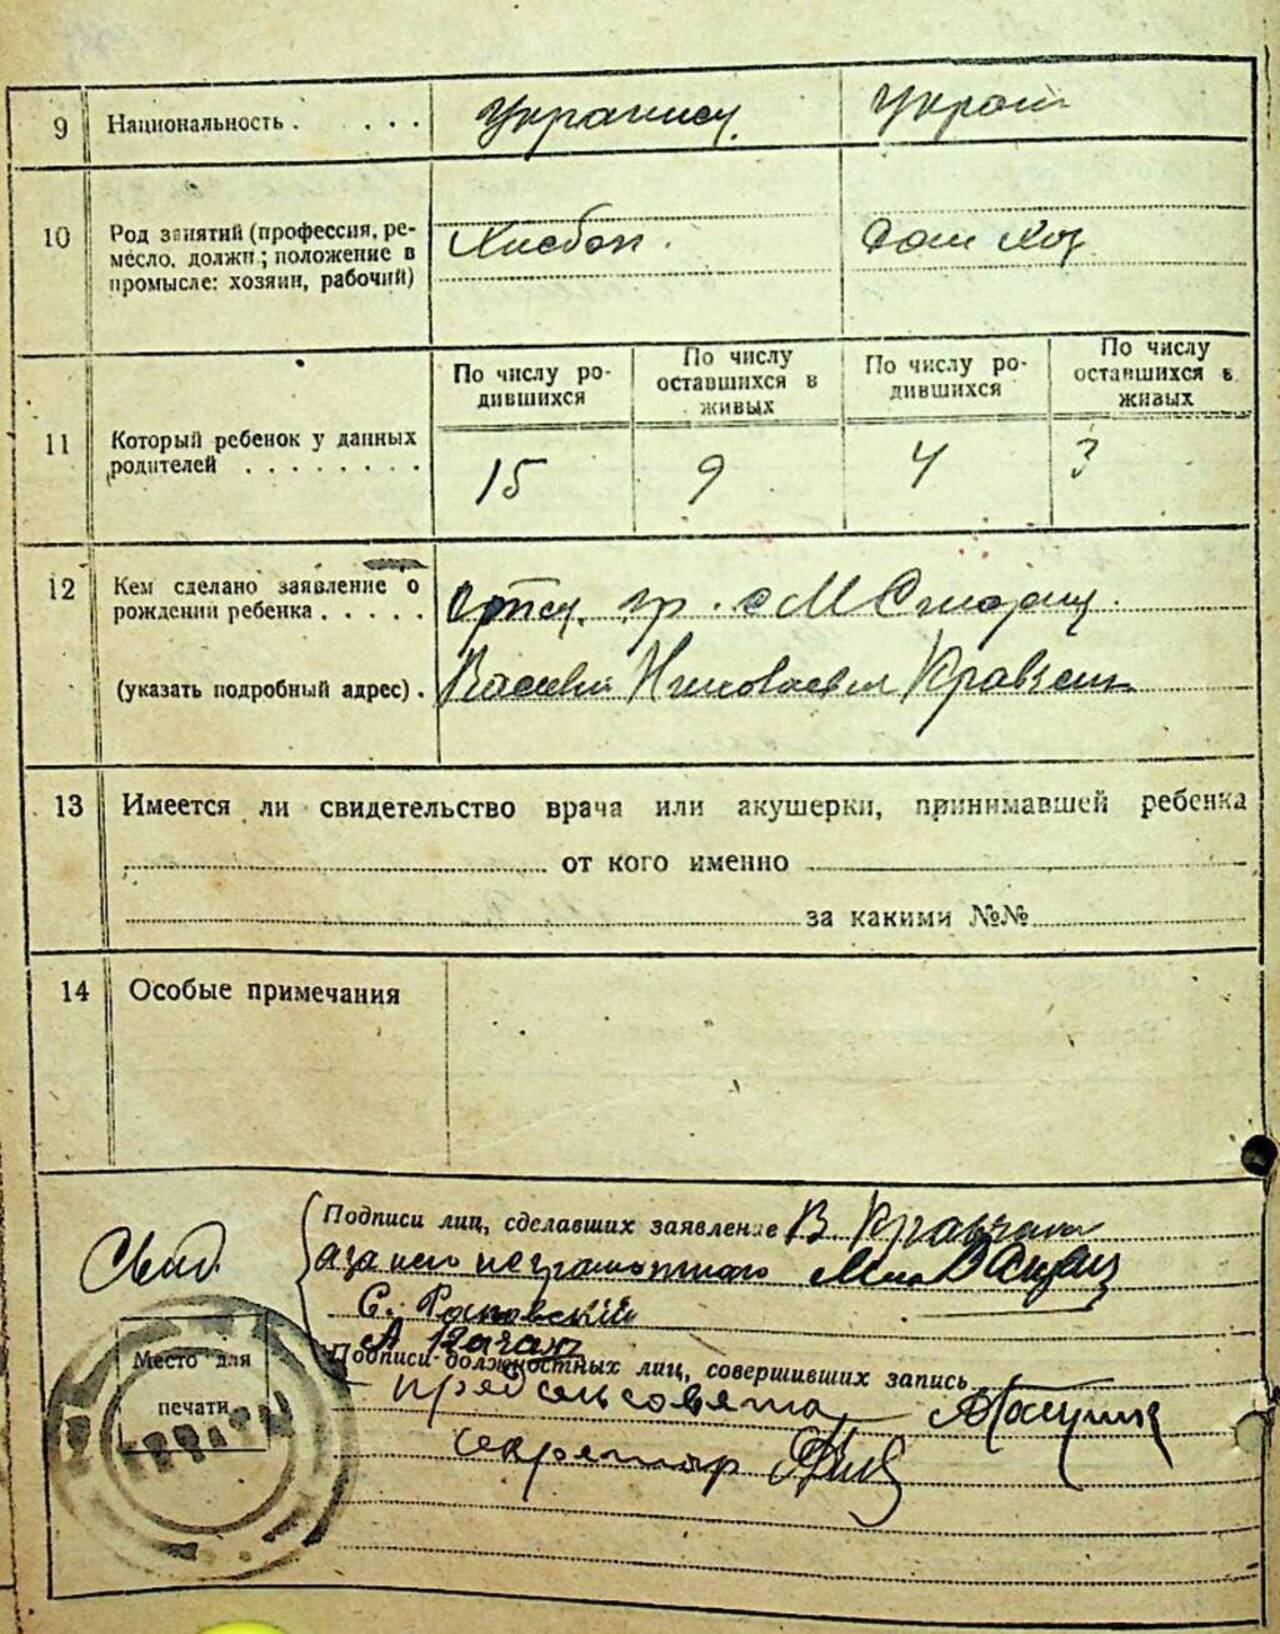 9 Национальность . . . . Украинец. Украин
10 Род занятий (профессия, ре-
месло, должн.; положение в
промысле: хозяин, рабочий)
Хлебоп. Дом Хоз
По числу ро-
дившихся
По числу
оставшихся в
живых
По числу ро-
дившихся
По числу
оставшихся в
живых
11 Который ребенок у данных
родителей . . . . . . . .
15 9 4 3
12 Кем сделано заявление о
рождении ребенка . . . . .
Отец гр. с М
(указать подробный адрес) .
Василий Николаевич Кравченко
13 Имеется ли свидетельство врача или акушерки, принимавшей ребенка
от кого именно
за какими №№
14 Особые примечания
Свид.
Подписи лиц, сделавших заявление В. Кравченко
а за него неграмотного
С.
А
Место для
печати
Подписи должностных лиц, совершивших запись
пред сельсовета
секретарь